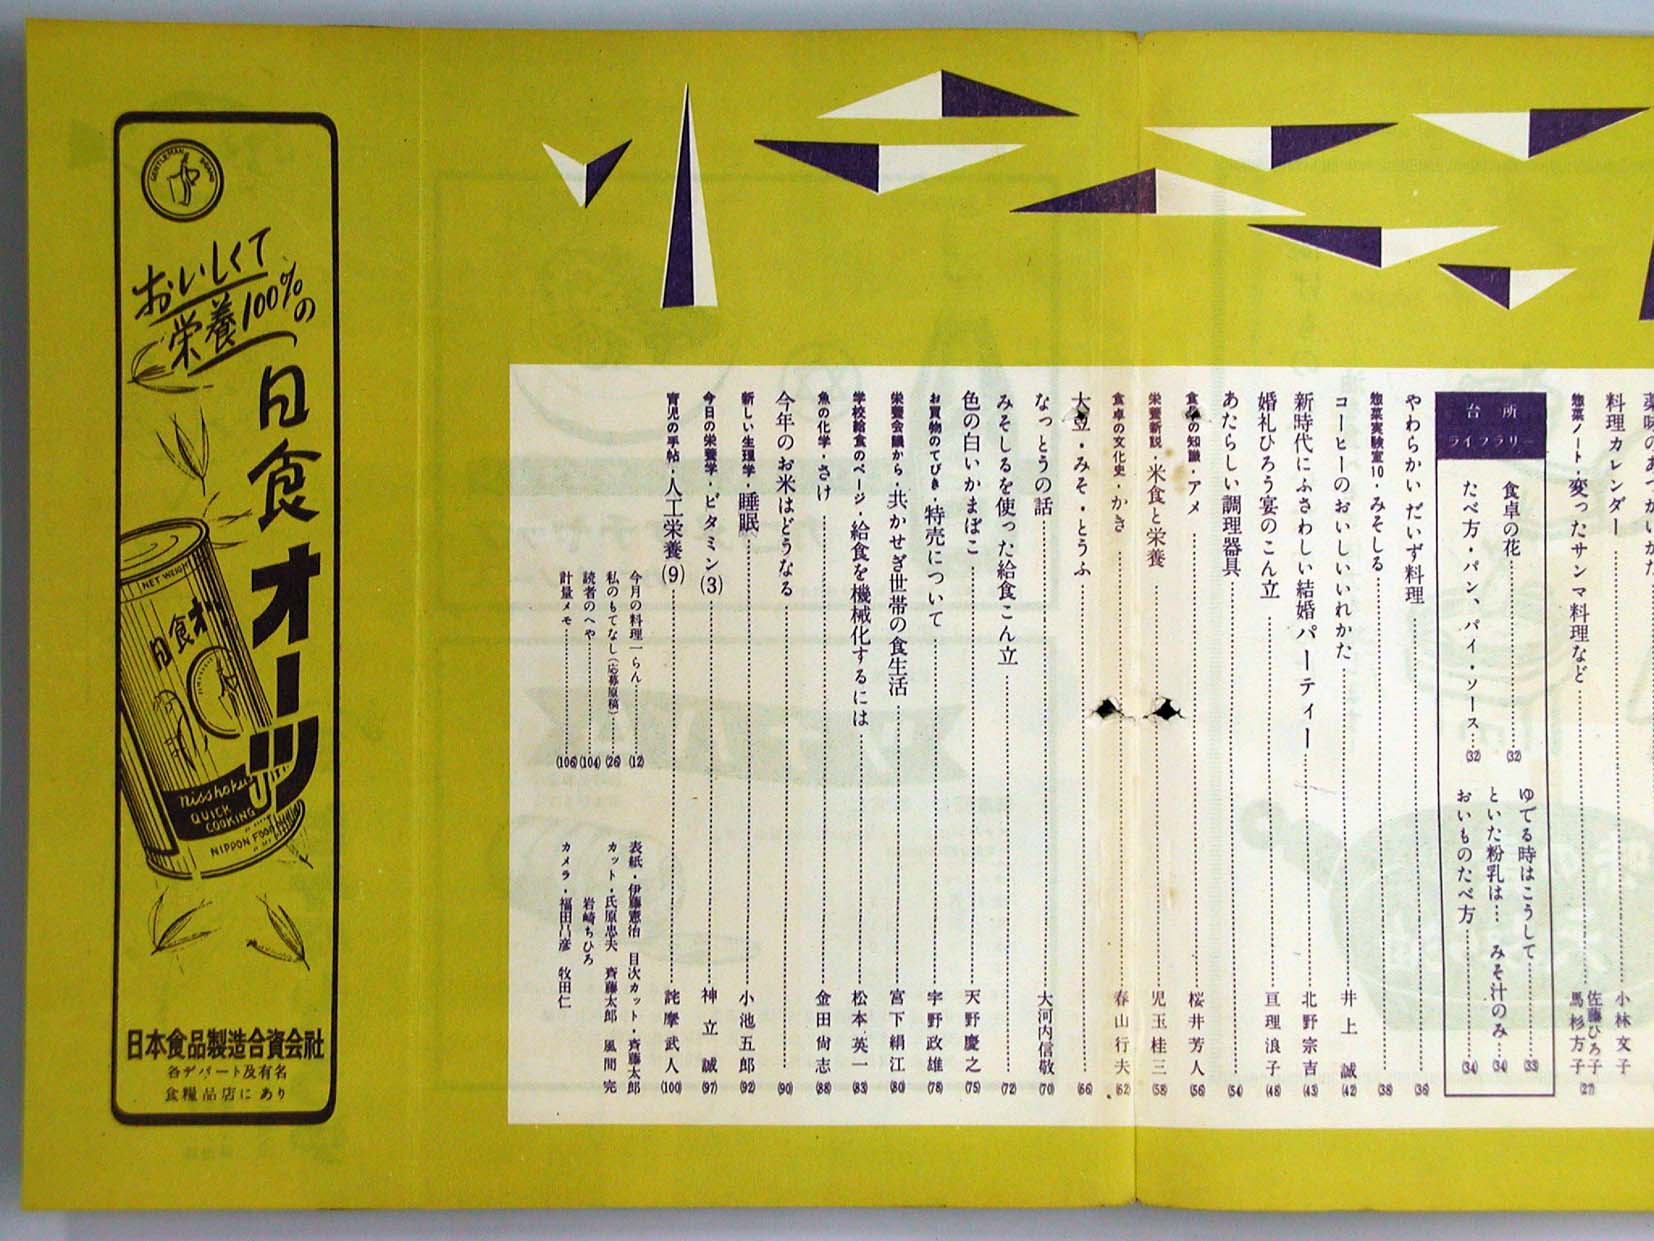 薬味のあつかいかた
料理カレンダー 小林文子
惣菜ノート・変ったサンマ料理など 佐藤ひろ子 馬杉方子 (27)
台所
ライフラリー
食卓の花 (32)
たべ方・パン、パイ・ソース (32)
ゆでる時はこうして (33)
といた粉乳は… みそ汁のみ (34)
おいものたべ方 (34)
やわらかいだいず料理 (36)
惣菜実験室10・みそしる (38)
コーヒーのおいしいいれかた 井上誠 (42)
新時代にふさわしい結婚パーティー 北野宗吉 (43)
婚礼ひろう宴のこん立 亘理浪子 (48)
あたらしい調理器具 (54)
食品の知識・アメ 桜井芳人 (56)
栄養新説・米食と栄養 児玉桂三 (58)
食卓の文化史・かき 春山行夫 (62)
大豆・みそ・とうふ (66)
なっとうの話 大河内信敬 (70)
みそしるを使った給食こん立 (72)
色の白いかまぼこ 天野慶之 (75)
お買物のてびき・特売について 宇野政雄 (78)
栄養会議から・共かせぎ世帯の食生活 宮下絹江 (80)
学校給食のページ・給食を機械化するには 松本英一 (83)
魚の化学・さけ 金田尚志 (88)
今年のお米はどうなる (90)
新しい生理学・睡眠 小池五郎 (92)
今日の栄養学・ビタミン(3) 神立誠 (97)
育児の手帖・人工栄養(9) 詫摩武人 (100)
今月の料理一らん (12)
私のもてなし(応募原稿) (26)
読者のへや (104)
計量メモ (106)
表紙・伊藤憲治 目次カット・齊藤太郎
カット・氏原忠夫 齊藤太郎 風間完
岩崎ちひろ
カメラ・福田昌彦 牧田仁
GENTLEMAN BRAND
おいしくて
栄養100%の
日食オーツ
NET WEIGHT
日食オーツ
nisshoku
QUICK
COOKING
NIPPON FOOD
日本食品製造合資会社
各デパート及有名
食糧品店にあり